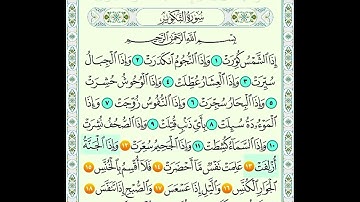 سُورَةُ التَّكْوِيرِ
بِسْمِ ٱللَّهِ ٱلرَّحْمَٰنِ ٱلرَّحِيمِ
إِذَا ٱلشَّمْسُ كُوِّرَتْ ١ وَإِذَا ٱلنُّجُومُ ٱنكَدَرَتْ ٢ وَإِذَا ٱلْجِبَالُ
سُيِّرَتْ ٣ وَإِذَا ٱلْعِشَارُ عُطِّلَتْ ٤ وَإِذَا ٱلْوُحُوشُ حُشِرَتْ
٥ وَإِذَا ٱلْبِحَارُ سُجِّرَتْ ٦ وَإِذَا ٱلنُّفُوسُ زُوِّجَتْ ٧ وَإِذَا
ٱلْمَوْءُۥدَةُ سُئِلَتْ ٨ بِأَىِّ ذَنۢبٍ قُتِلَتْ ٩ وَإِذَا ٱلصُّحُفُ نُشِرَتْ
١٠ وَإِذَا ٱلسَّمَآءُ كُشِطَتْ ١١ وَإِذَا ٱلْجَحِيمُ سُعِّرَتْ ١٢ وَإِذَا ٱلْجَنَّةُ
أُزْلِفَتْ ١٣ عَلِمَتْ نَفْسٌ مَّآ أَحْضَرَتْ ١٤ فَلَآ أُقْسِمُ بِٱلْخُنَّسِ ١٥
ٱلْجَوَارِ ٱلْكُنَّسِ ١٦ وَٱلَّيْلِ إِذَا عَسْعَسَ ١٧ وَٱلصُّبْحِ إِذَا تَنَفَّسَ ١٨